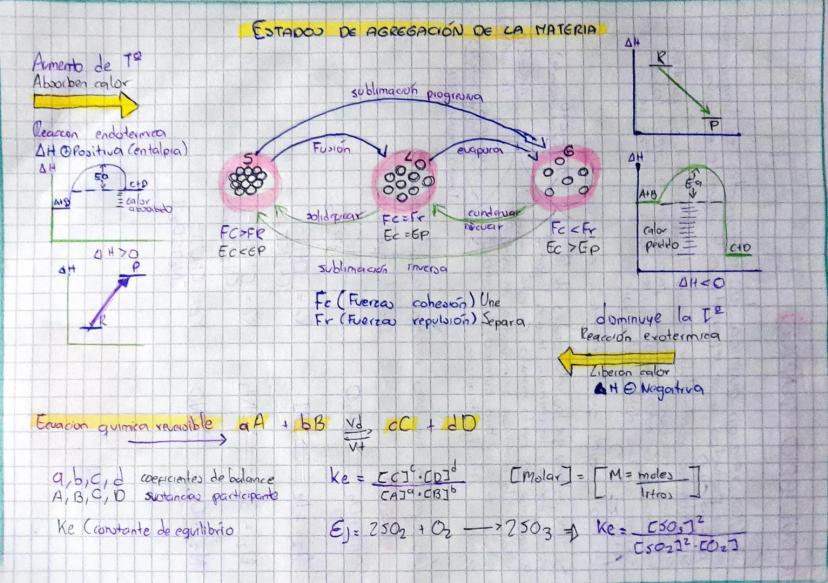 ESTADOS DE AGREGACIÓN DE LA MATERIA
Aumento de Tº
Absorben calor
Reaccion endotermica
ΔH ⊕ Positiva (entalpia)
ΔH
Ea
A+B
C+D
calor absorbido
ΔH>0
ΔH
P
R
sublimación progresiva
S
Fusión
L
evapora
G
solidificar
condensar
FC>FR
EC<EP
FC=Fr
EC=EP
FC<Fr
EC>EP
sublimación inversa
Fc (Fuerzas cohesión) Une
Fr (Fuerzas repulsión) Separa
ΔH
R
P
ΔH
A+B
Ea
calor
C+D
ΔH<0
dominuye la Tº
Reacción exotermica
Liberan calor
ΔH ⊖ Negativa
Ecuacion quimica reversible aA + bB Vd cC + dD
a,b,c,d coeficientes de balance
A,B,C,D sustancias participante
Ke = [C]^c·[D]^d / [A]^a·[B]^b
[Molar] = [M = moles / litros]
Ke (constante de equilibrio
Ej= 2SO₂ + O₂ ⟶ 2SO₃ ⇒ Ke = [SO₃]² / [SO₂]²·[O₂]